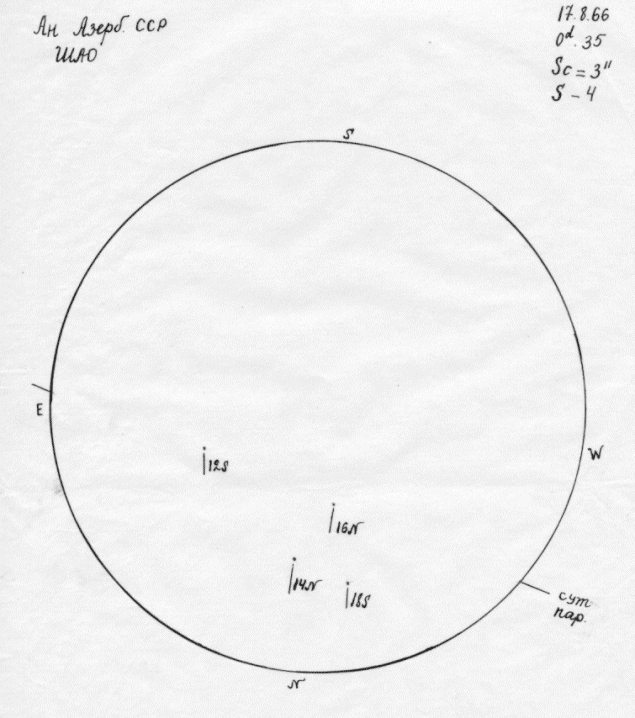 Ан Азерб. ССР
ШАО
17.8.66
0d.35
Sc = 3"
S - 4
S
E
W
12S
16N
14N
18S
сут.
пар.
N